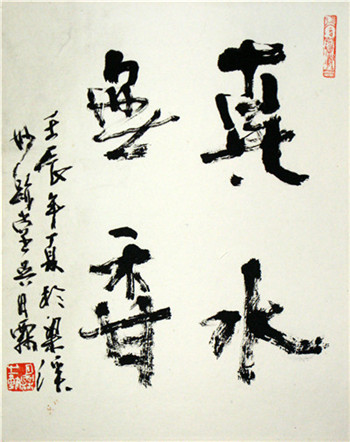 真水
無香
壬辰年夏於梁溪
妙
月霖